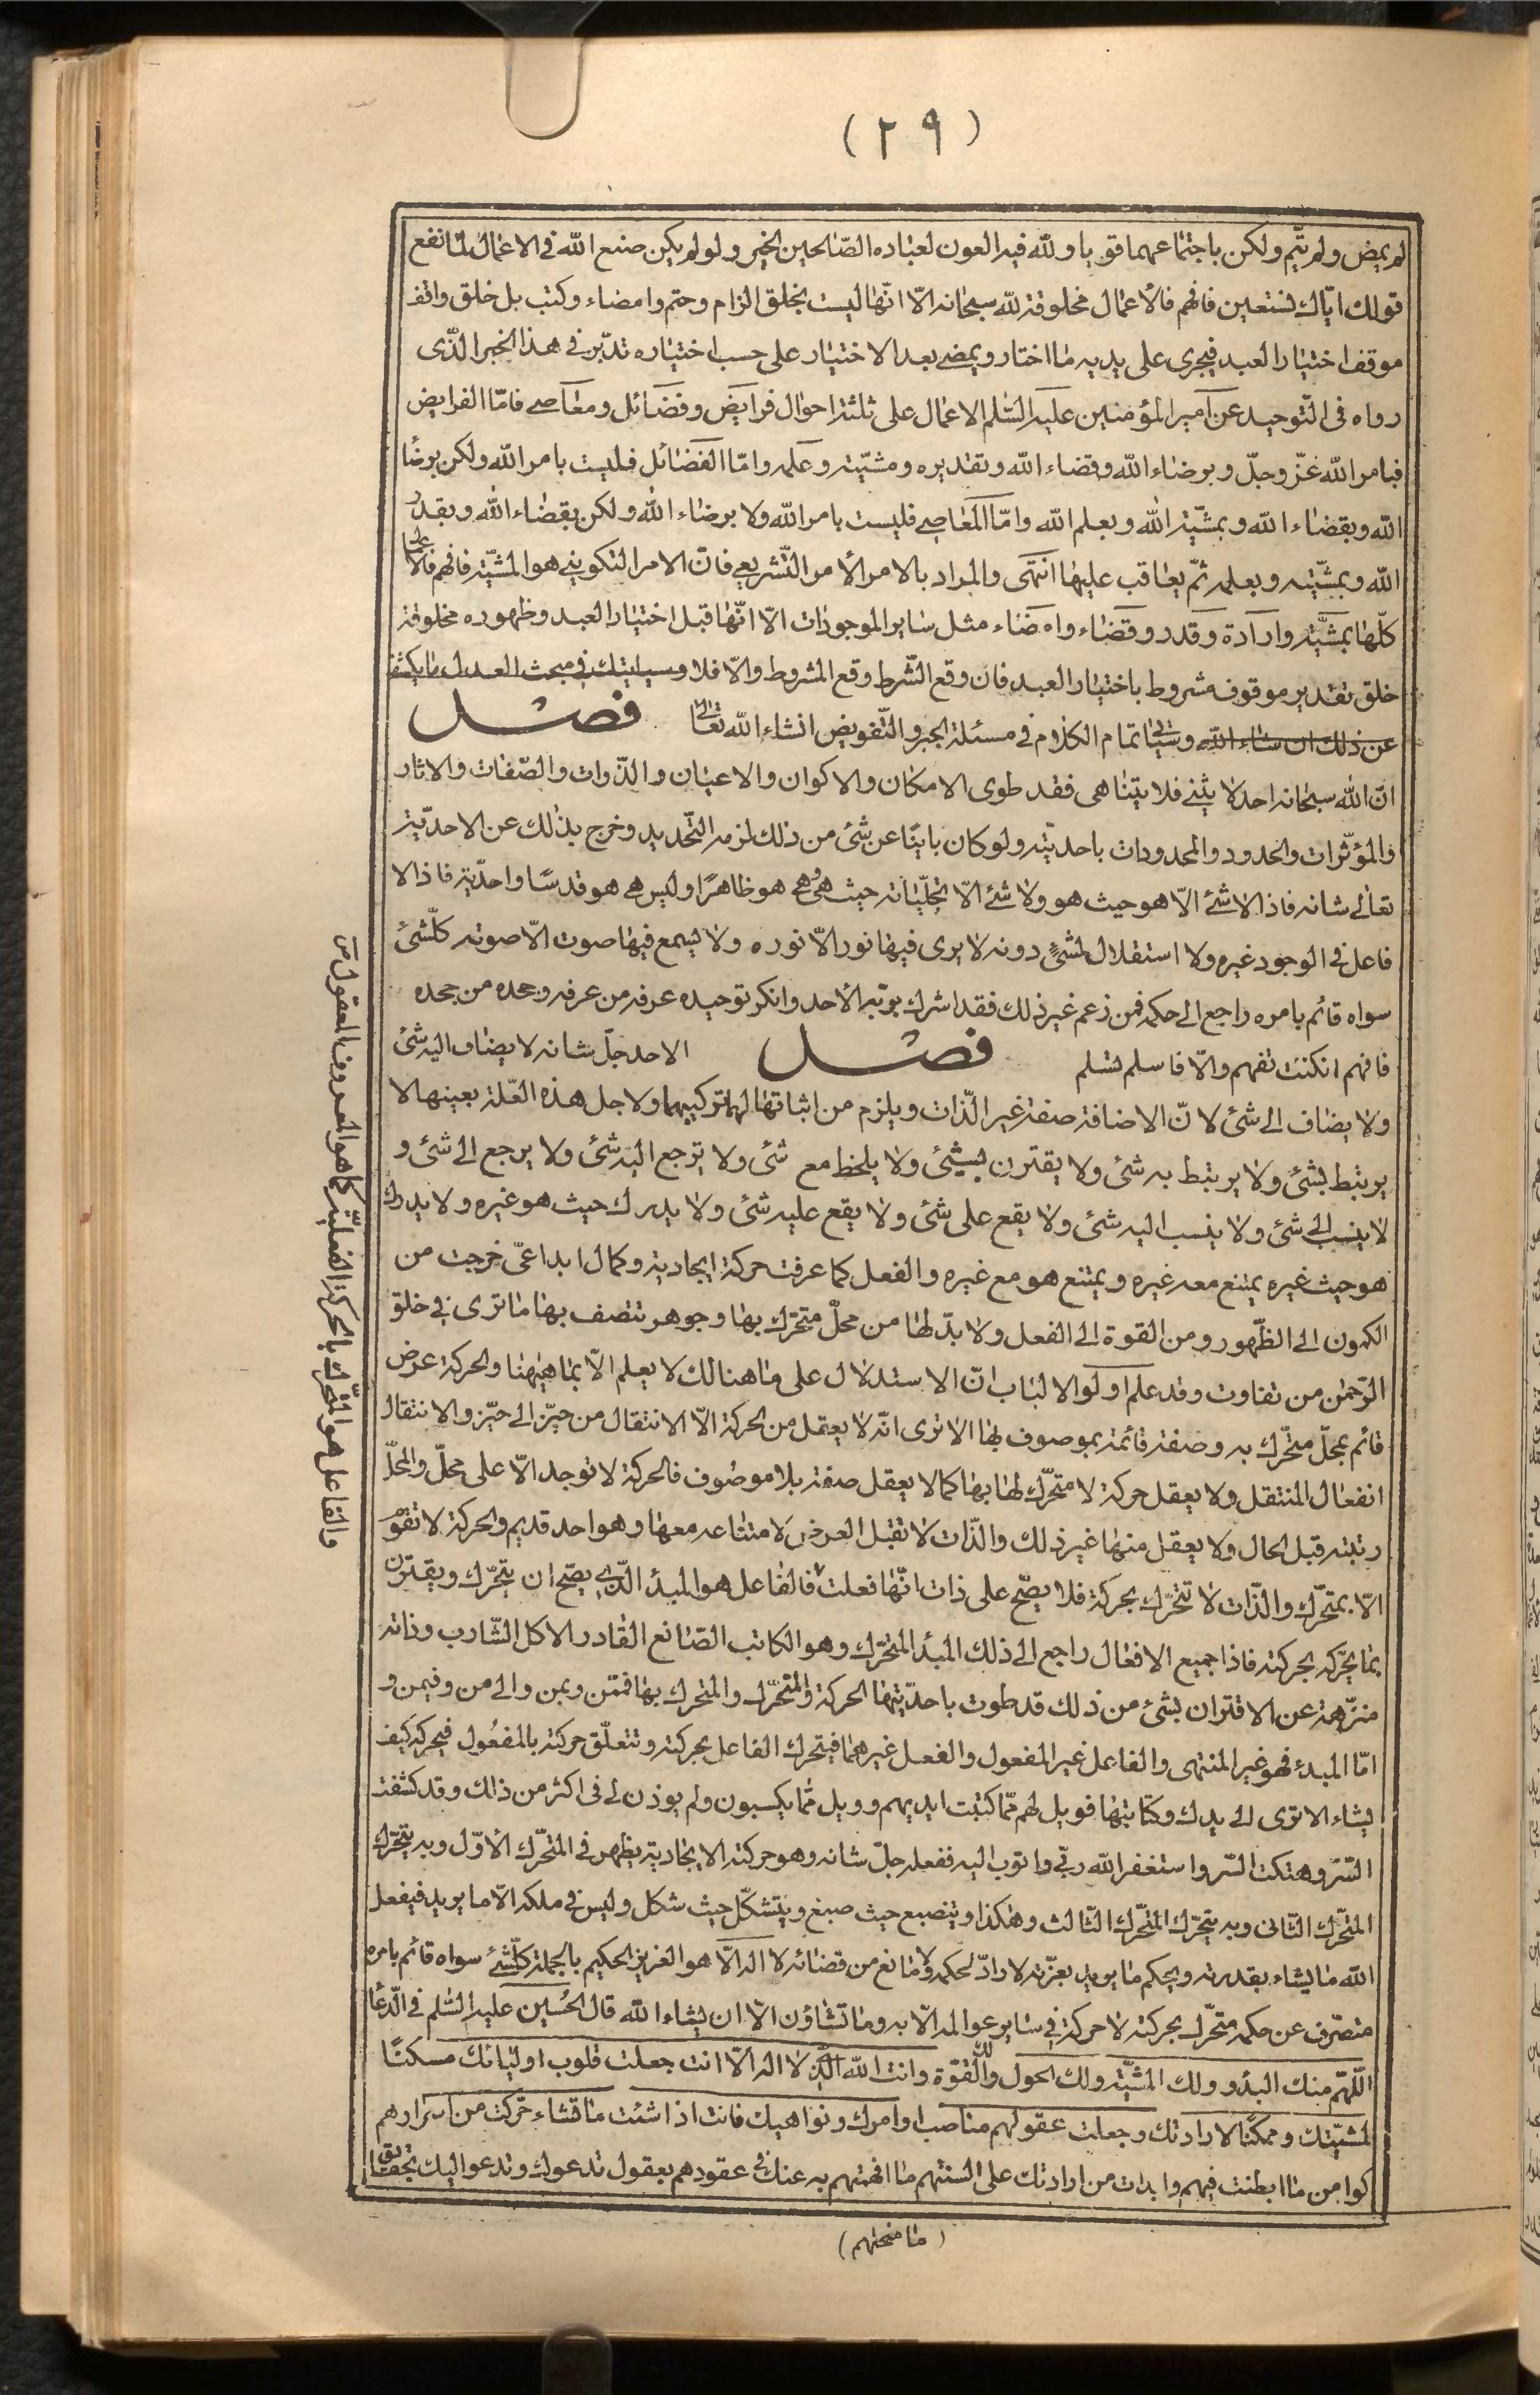 (٢٩)
لم يمض ولم يتم ولكن باجتماعهما قويا ولله فيه العون لعباده الصّالحين الخبر ولو لم يكن صنع الله فى الاعمال لما نفع
قولك ايّاك نستعين فافهم فالاعمال مخلوقة لله سبحانه الّا انّها ليست بخلق الزام وحتم وامضاء وكتب بل خلق واقف
موقف اختيار العبد فيجرى على يديه ما اختار ويمضى بعد الاختيار على حسب اختياره تدبّر فى هذا الخبر الّذى
رواه فى التّوحيد عن امير المؤمنين عليه السّلم الاعمال على ثلثة احوال فرايض وفضائل ومعاصى فامّا الفرايض
فبامر الله عزّ وجلّ وبرضاء الله وقضاء الله وتقديره ومشيّته وعلمه وامّا الفضائل فليست بامر الله ولكن برضا
الله وبقضاء الله وبمشيّة الله وبعلم الله وامّا المعاصى فليست بامر الله ولا برضاء الله ولكن بقضاء الله وبقدر
الله وبمشيّته وبعلمه ثمّ يعاقب عليها انتهى والمراد بالامر الأمر التّشريعى فانّ الامر التكوينى هو المشيّة فافهم فالاعمال
كلّها بمشيّة وارادة وقدر وقضاء وامضاء مثل ساير الموجودات الّا انّها قبل اختيار العبد وظهوره مخلوقة
خلق تقدير موقوف مشروط باختيار العبد فان وقع الشّرط وقع المشروط والّا فلا وسياتيك فى مبحث العدل ما يكشف
عن ذلك ان شاء الله وسياتى تمام الكلام فى مسئلة الجبر والتّفويض انشاء الله تعالى فصل
انّ الله سبحانه احد لا يثنى فلا يتناهى فقد طوى الامكان والاكوان والاعيان والذّوات والصّفات والاثار
والمؤثّرات والحدود والمحدودات باحديّته ولو كان باينًا عن شئ من ذلك لزمه التّحديد وخرج بذلك عن الاحديّة
تعالى شانه فاذا لا شئ الّا هو حيث هو ولا شئ الّا تجلّياته حيث هى هى هو ظاهرًا وليس هى هو قدسًا واحديّة فاذا لا
فاعل فى الوجود غيره ولا استقلال لشئٍ دونه لا يرى فيها نور الّا نوره ولا يسمع فيها صوت الّا صوته كلّشئ
سواه قائم بامره راجع الى حكمه فمن زعم غير ذلك فقد اشرك بربّه الأحد وانكر توحيده عرفه من عرفه وجحده من جحده
فافهم ان كنت تفهم والّا فاسلم تسلم فصل الاحد جلّ شانه لا يضاف اليه شئ
ولا يضاف الى شئ لانّ الاضافة صفة غير الذّات ويلزم من اثباتها لهما تركيبهما ولاجل هذه العلّة بعينها لا
يرتبط بشئ ولا يرتبط به شئ ولا يقترن بشئ ولا يلحظ مع شئ ولا يرجع اليه شئ ولا يرجع الى شئ و
لا ينسب الى شئ ولا ينسب اليه شئ ولا يقع على شئ ولا يقع عليه شئ ولا يدرك حيث هو غيره ولا يدرك
هو حيث غيره يمتنع معه غيره ويمتنع هو مع غيره والفعل كما عرفت حركة ايجادية وكمال ابداعىّ خرجت من
الكمون الى الظّهور ومن القوة الى الفعل ولا بدّ لها من محلّ متحرّك بها وجوهر تتصف بها ما ترى فى خلق
الرّحمن من تفاوت وقد علم اولوا الالباب انّ الاستدلال على ما هنالك لا يعلم الّا بما هيهنا والحركة عرض
قائم بمحلّ متحرّك به وصفة قائمة بموصوف بها الا ترى انّه لا يعتمل من الحركة الّا الانتقال من حيّز الى حيّز والانتقال
انفعال المنتقل ولا يعقل حركة لا متحرّك لها بها كما لا يعقل صفة بلا موصوف فالحركة لا توجد الّا على محلّ والمحلّ
رتبته قبل الحال ولا يعقل منها غير ذلك والذّات لا تقبل العرض لامتناعه معها وهو احد قديم والحركة لا تقوم
الّا بمتحرّك والذّات لا تتحرّك بحركة فلا يصّح على ذات انّها فعلت فالفاعل هو المبدأ الّذى يصّح ان يتحرّك ويقترن
بما يحرّكه بحركته فاذا جميع الافعال راجع الى ذلك المبدأ المتحرّك وهو الكاتب الصّانع القادر الاكل الشّارب وذاته
منزّهة عن الاقتران بشئ من ذلك قد طوت باحديّتها الحركة والمتحرّك والمتحرك بها فممّن وبمن والى من وفيمن و
امّا المبدء فهو غير المنتهى والفاعل غير المفعول والفعل غيرهما فيتحرك الفاعل بحركته وتتعلّق حركته بالمفعول فيحركه كيف
يشاء الا ترى الى يدك وكتابتها فويل لهم ممّا كتبت ايديهم وويل ممّا يكسبون ولم يوذن لى فى اكثر من ذالك وقد كشفت
السّرّ وهتكت السّر واستغفر الله ربّى واتوب اليه ففعله جلّ شانه وهو حركته الايجادية يظهر فى المتحّرك الأوّل وبه يتحرّك
المتحّرك الثّانى وبه يتحرّك المتحّرك الثّالث وهكذا وينصبغ حيث صبغ ويتشكّل حيث شكل وليس فى ملكه الّا ما يريد فيفعل
الله ما يشاء بقدرته ويحكم ما يريد بعزّته لا رادّ لحكمه ولا مانع من قضائه لا اله الّا هو العزيز الحكيم بالجملة كلّشئ سواه قائم بامره
متصرّف عن حكمه متحّرك بحركته لا حركة فى ساير عوالمه الّا به وما تشاؤن الّا ان يشاء الله قال الحُسين عليه السّلم فى الّدعا
اللّهمّ منك البدؤ ولك المشيّة ولك الحول ولك القوّة وانت الله الّذى لا اله الّا انت جعلت قلوب اوليائك مسكنًا
لمشيّتك وممكنًا لارادتك وجعلت عقولهم مناصب اوامرك ونواهيك فانت اذا شئت ما تشاء حّركت من اسرارهم
كوامن ما ابطنت فيهم وابدات من ارادتك على السنتهم ما افهمتهم به عنك فى عقودهم بعقول تدعوك وتدعو اليك بحقايق
(ما منحتهم)
والفاعل هو المتحّرك بالحركة الفعليّة كما هو المعروف المعقول